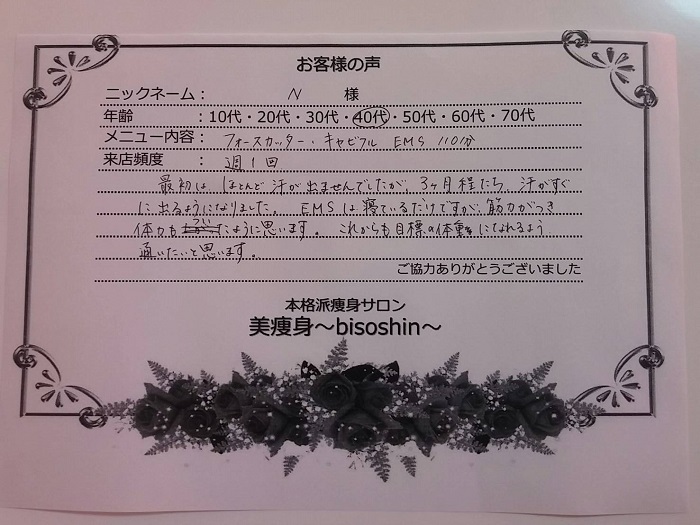 お客様の声
ニックネーム： N 様
年齢 ：10代・20代・30代・40代・50代・60代・70代
メニュー内容： フォースカッター・キャビフル EMS 110分
来店頻度 ： 週1回
最初は、ほとんど汗が出ませんでしたが、3ヶ月程たち、汗がすぐ
に出るようになりました。 EMSは寝ているだけですが、筋力がつき
体力もついたように思います。 これからも目標の体重になれるよう
通いたいと思います。
ご協力ありがとうございました
本格派痩身サロン
美痩身～bisoshin～